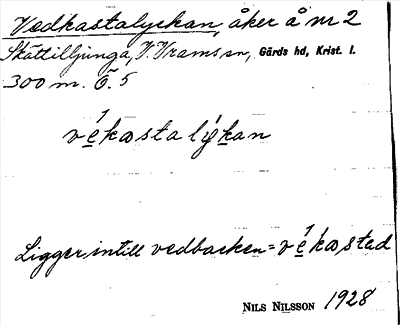 Vedkastalyckan, åker å nr 2
Skättilljunga, V. Vrams sn, Gärds hd, Krist. l.
300 m. Ö. 5
vékasta lýkan
Ligger intill vedbacken = vékasted
NILS NILSSON 1928